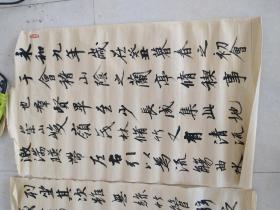 永和九年歲在癸丑暮春之初會
于會稽山陰之蘭亭脩禊事
也羣賢畢至少長咸集此地
崇山峻嶺茂林脩竹又有清流
激湍暎帶左右引以為流觴曲水
列坐其次雖無絲竹管弦